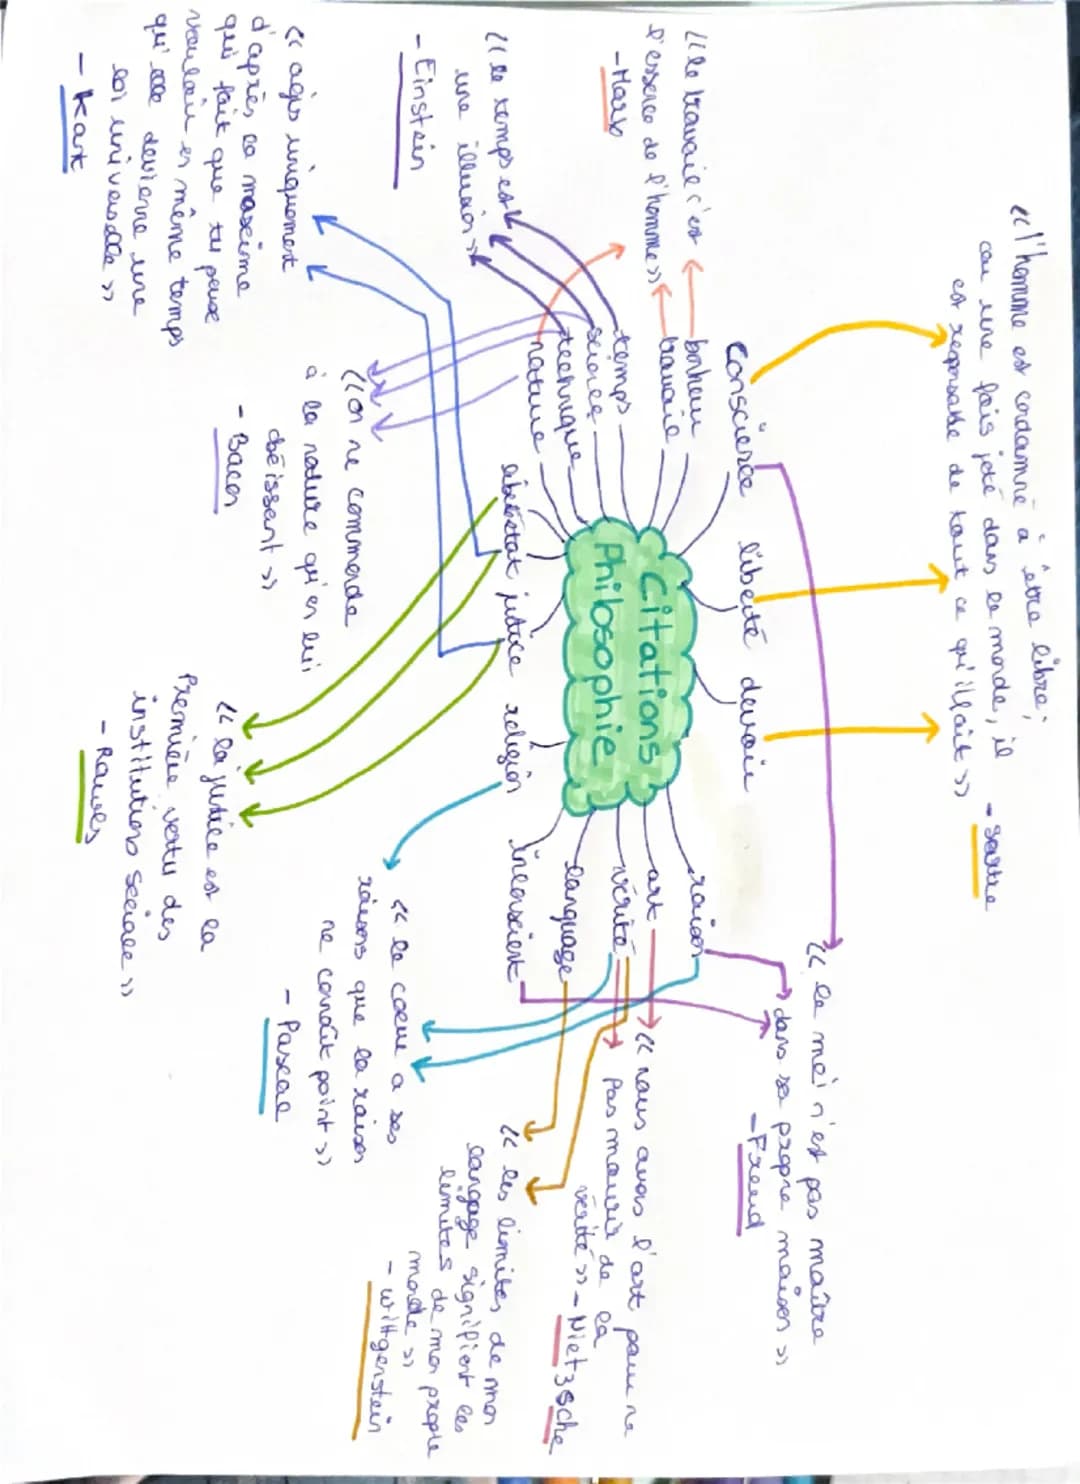 « l'homme est condamné à être libre ;
car une fois jeté dans le monde, il
est responsable de tout ce qu'il fait »
- Sartre
« le travail c'est
l'essence de l'homme »
- Marx
« le temps est
une illusion »
- Einstein
« agis uniquement
d'après la maxime
qui fait que tu peux
vouloir en même temps
qu'elle devienne une
loi universelle »
- Kant
conscience
liberté
devoir
bonheur
travail
temps
science
technique
nature
Citations
Philosophie
raison
art
vérité
language
état
justice
religion
inconscient
« le moi n'est pas maître
dans sa propre maison »
- Freud
« nous avons l'art pour ne
pas mourir de la
vérité » - Nietzsche
« les limites de mon
langage signifient les
limites de mon propre
monde »
- Wittgenstein
« On ne commande
à la nature qu'en lui
obéissant »
- Bacon
« le coeur a ses
raisons que la raison
ne connaît point »
- Pascal
« la justice est la
Première vertu des
institutions sociale »
- Rawles